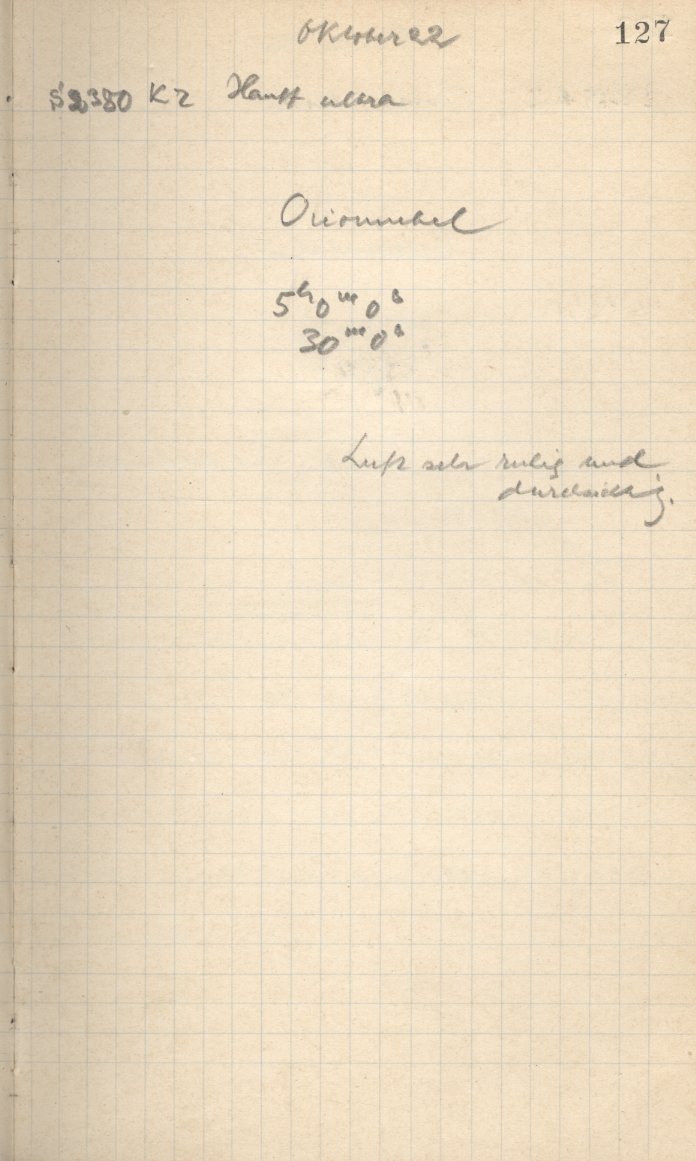 Oktober 22
127
S 2380 K2 Hauff ultra
Orionnebel
5h 0m 0s
30m 0s
Luft sehr ruhig und
durchsichtig.